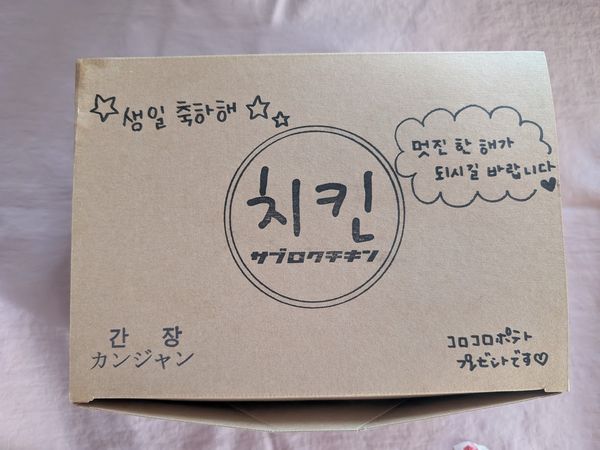 ☆생일 축하해☆☆
멋진 한 해가
되시길 바랍니다♥
치킨
サブロクチキン
간 장
カンジャン
コロコロポテト
プレゼントです♡